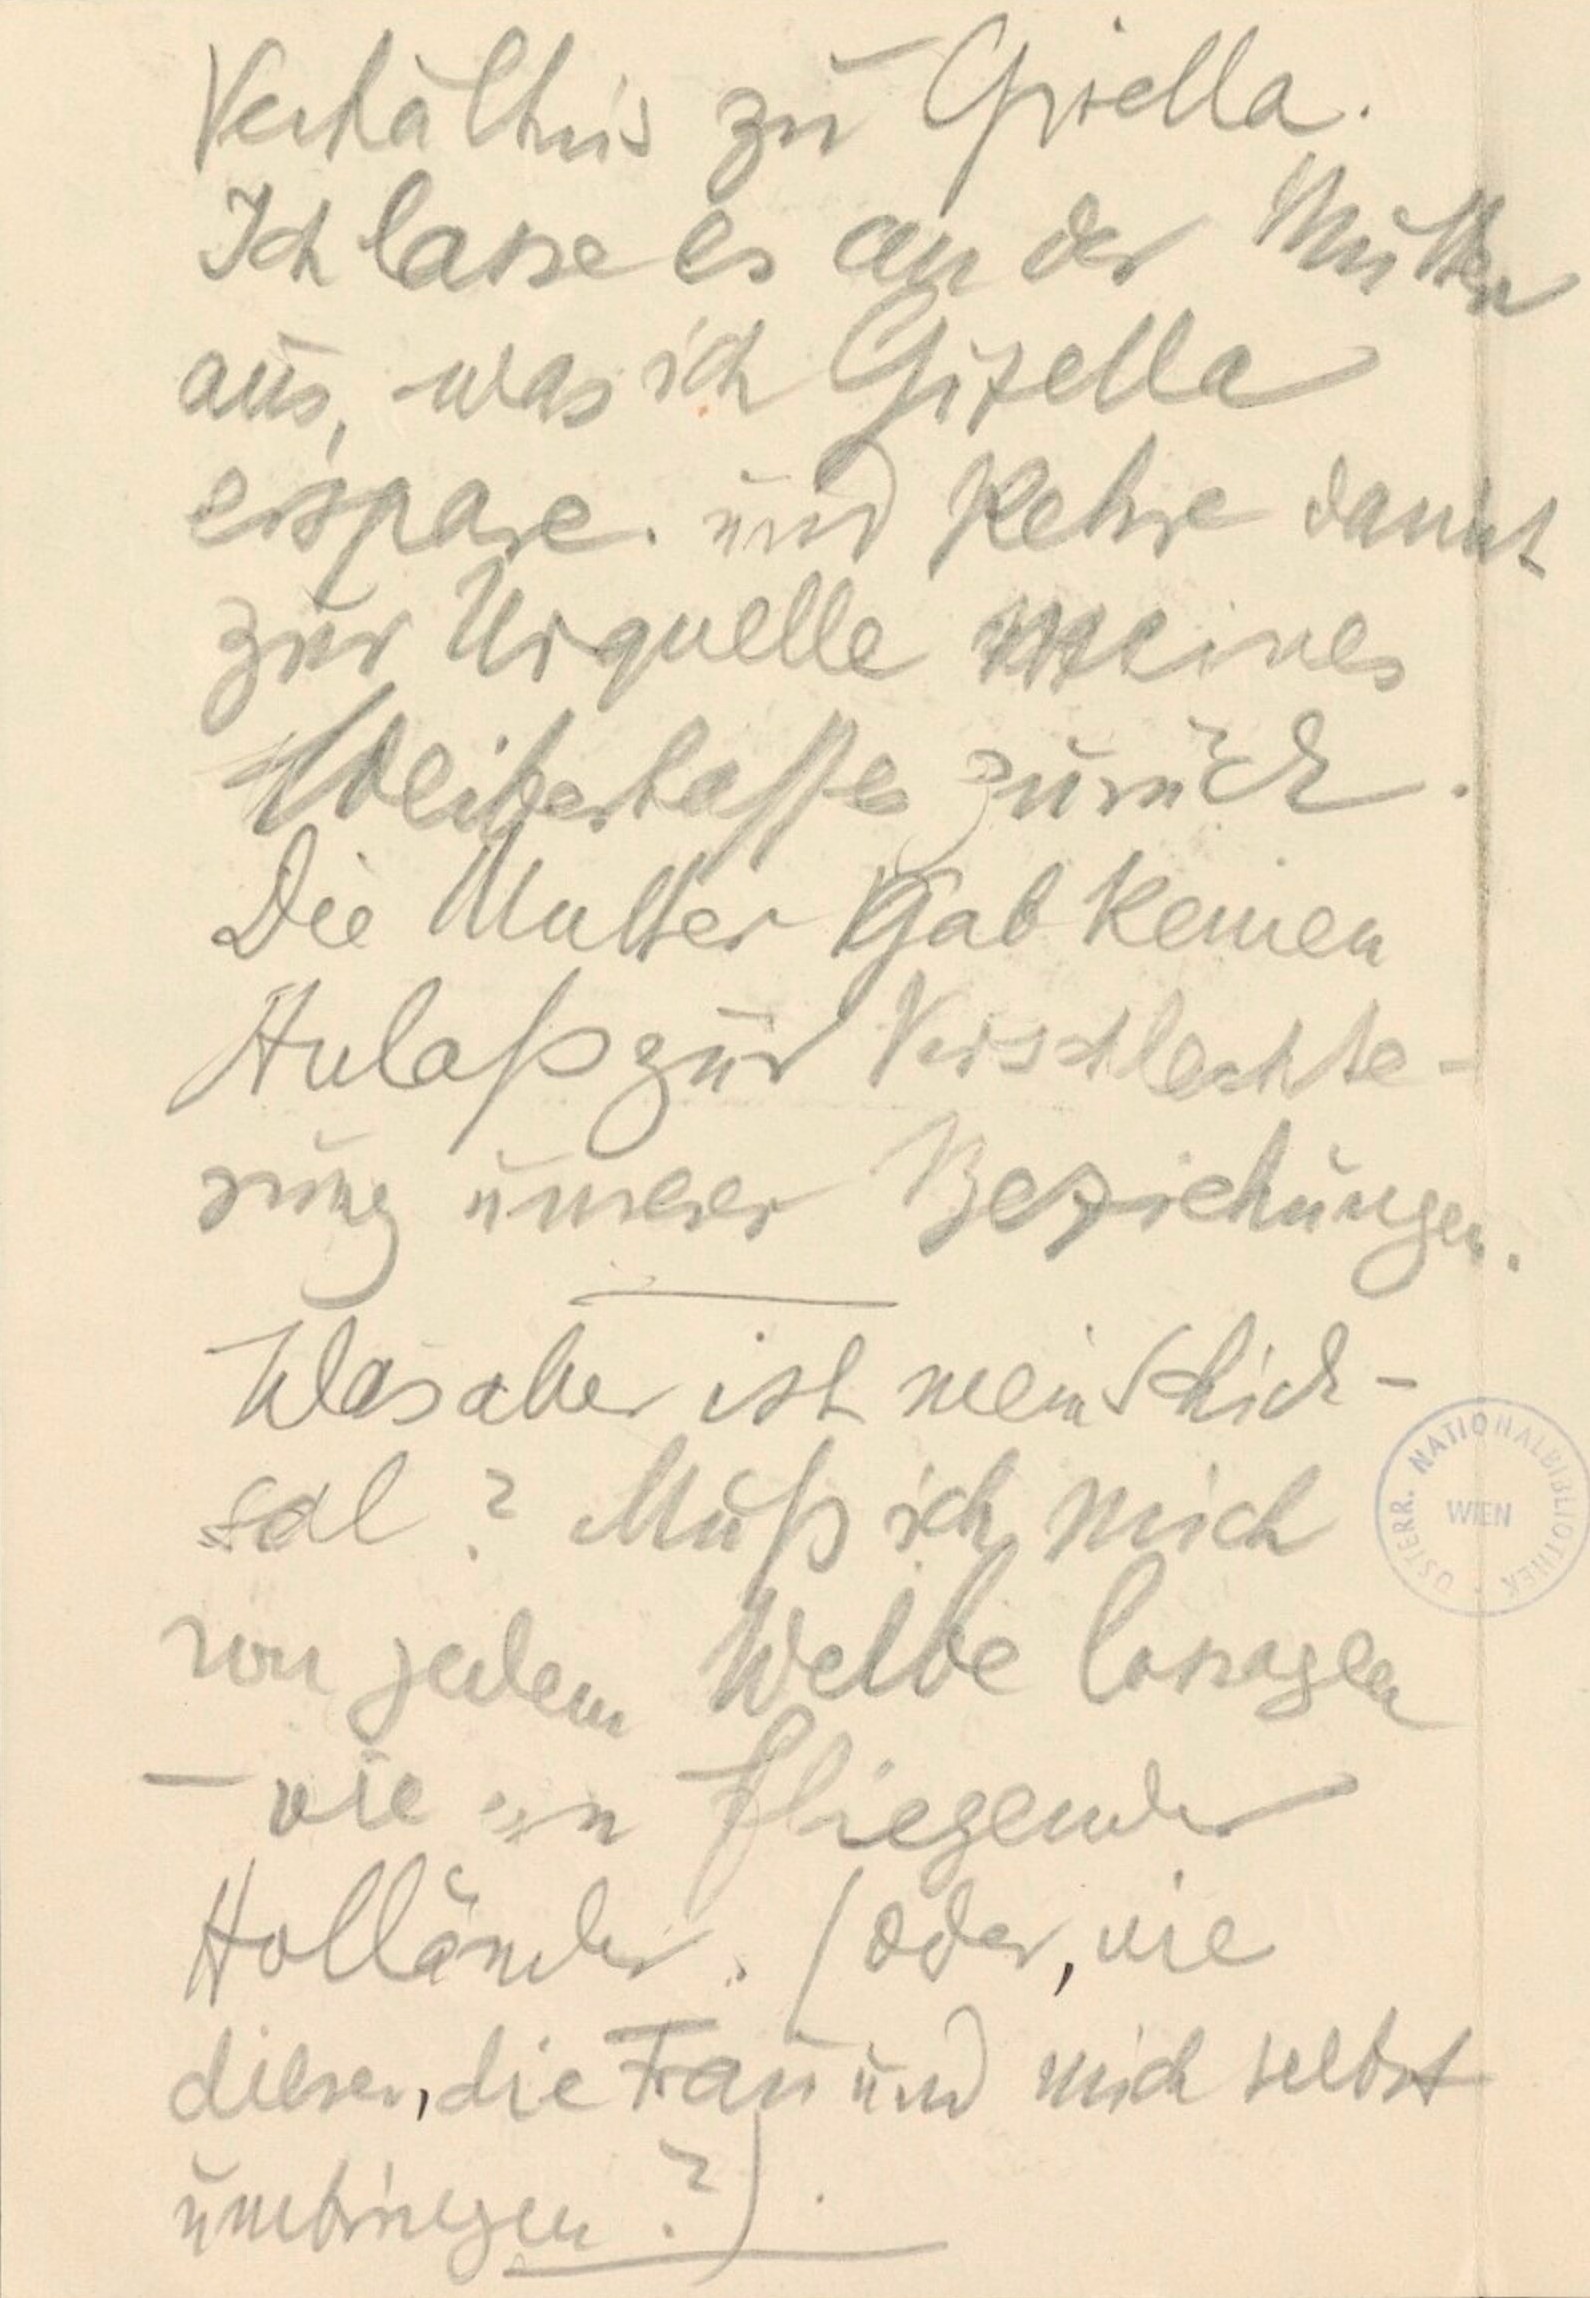 Verhältnis zu Gisella.
Ich lasse es an der Mutter
aus, was ich Gizella
erspare. und kehre damit
zur Urquelle meines
Weiberhasses zurück.
Die Mutter gab keinen
Anlaß zur Verschlechte-
rung unserer Beziehungen.
Was aber ist mein Schick-
sal? Muß ich mich
von jedem Weibe lossagen
– wie ein fliegender
Holländer. (oder, wie
dieser, die Frau und mich selbst
umbringen?).
ÖSTERR. NATIONALBIBLIOTHEK
WIEN